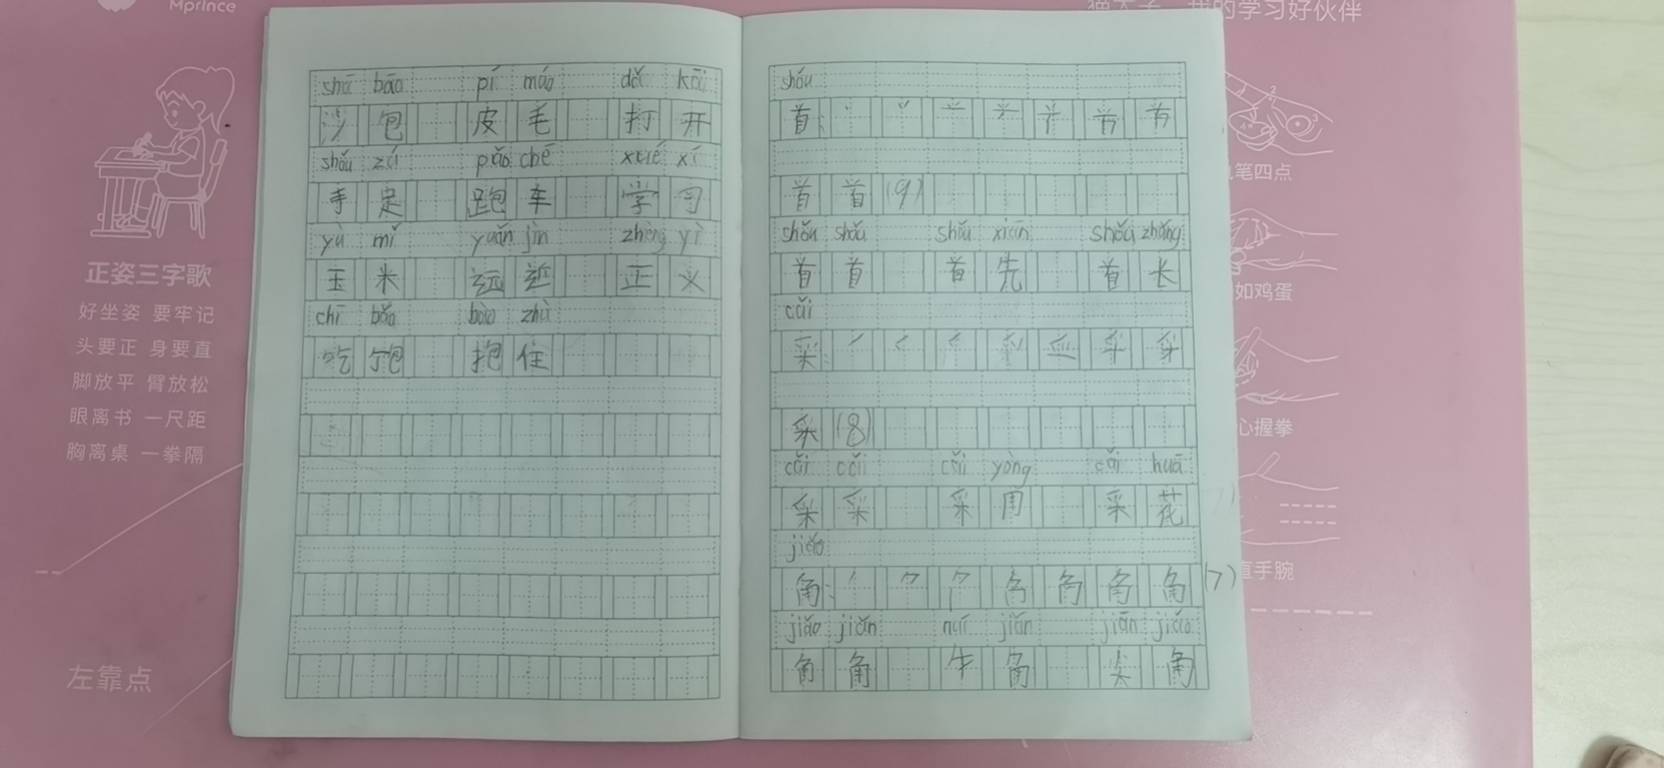 Mprince
的学习好伙伴
正姿三字歌
好坐姿 要牢记
头要正 身要直
脚放平 臂放松
眼离书 一尺距
胸离桌 一拳隔
左靠点
shā bāo pí máo dǎ kāi
沙包 皮毛 打开
shǒu zú pǎo chē xué xí
手足 跑车 学习
yù mǐ yuǎn jìn zhèng yì
玉米 远近 正义
chī bǎo bào zhù
吃饱 抱住
shǒu
首:
首首(9)
shǒu shǒu shǒu xiān shǒu zhǎng
首首 首先 首长
cǎi
采:
采(8)
cǎi cǎi cǎi yòng cǎi huā
采采 采用 采花
jiǎo
角: 角(7)
jiǎo jiǎn niú jiǎn jiān jiǎo
角角 牛角 尖角
笔四点
如鸡蛋
心握拳
直手腕